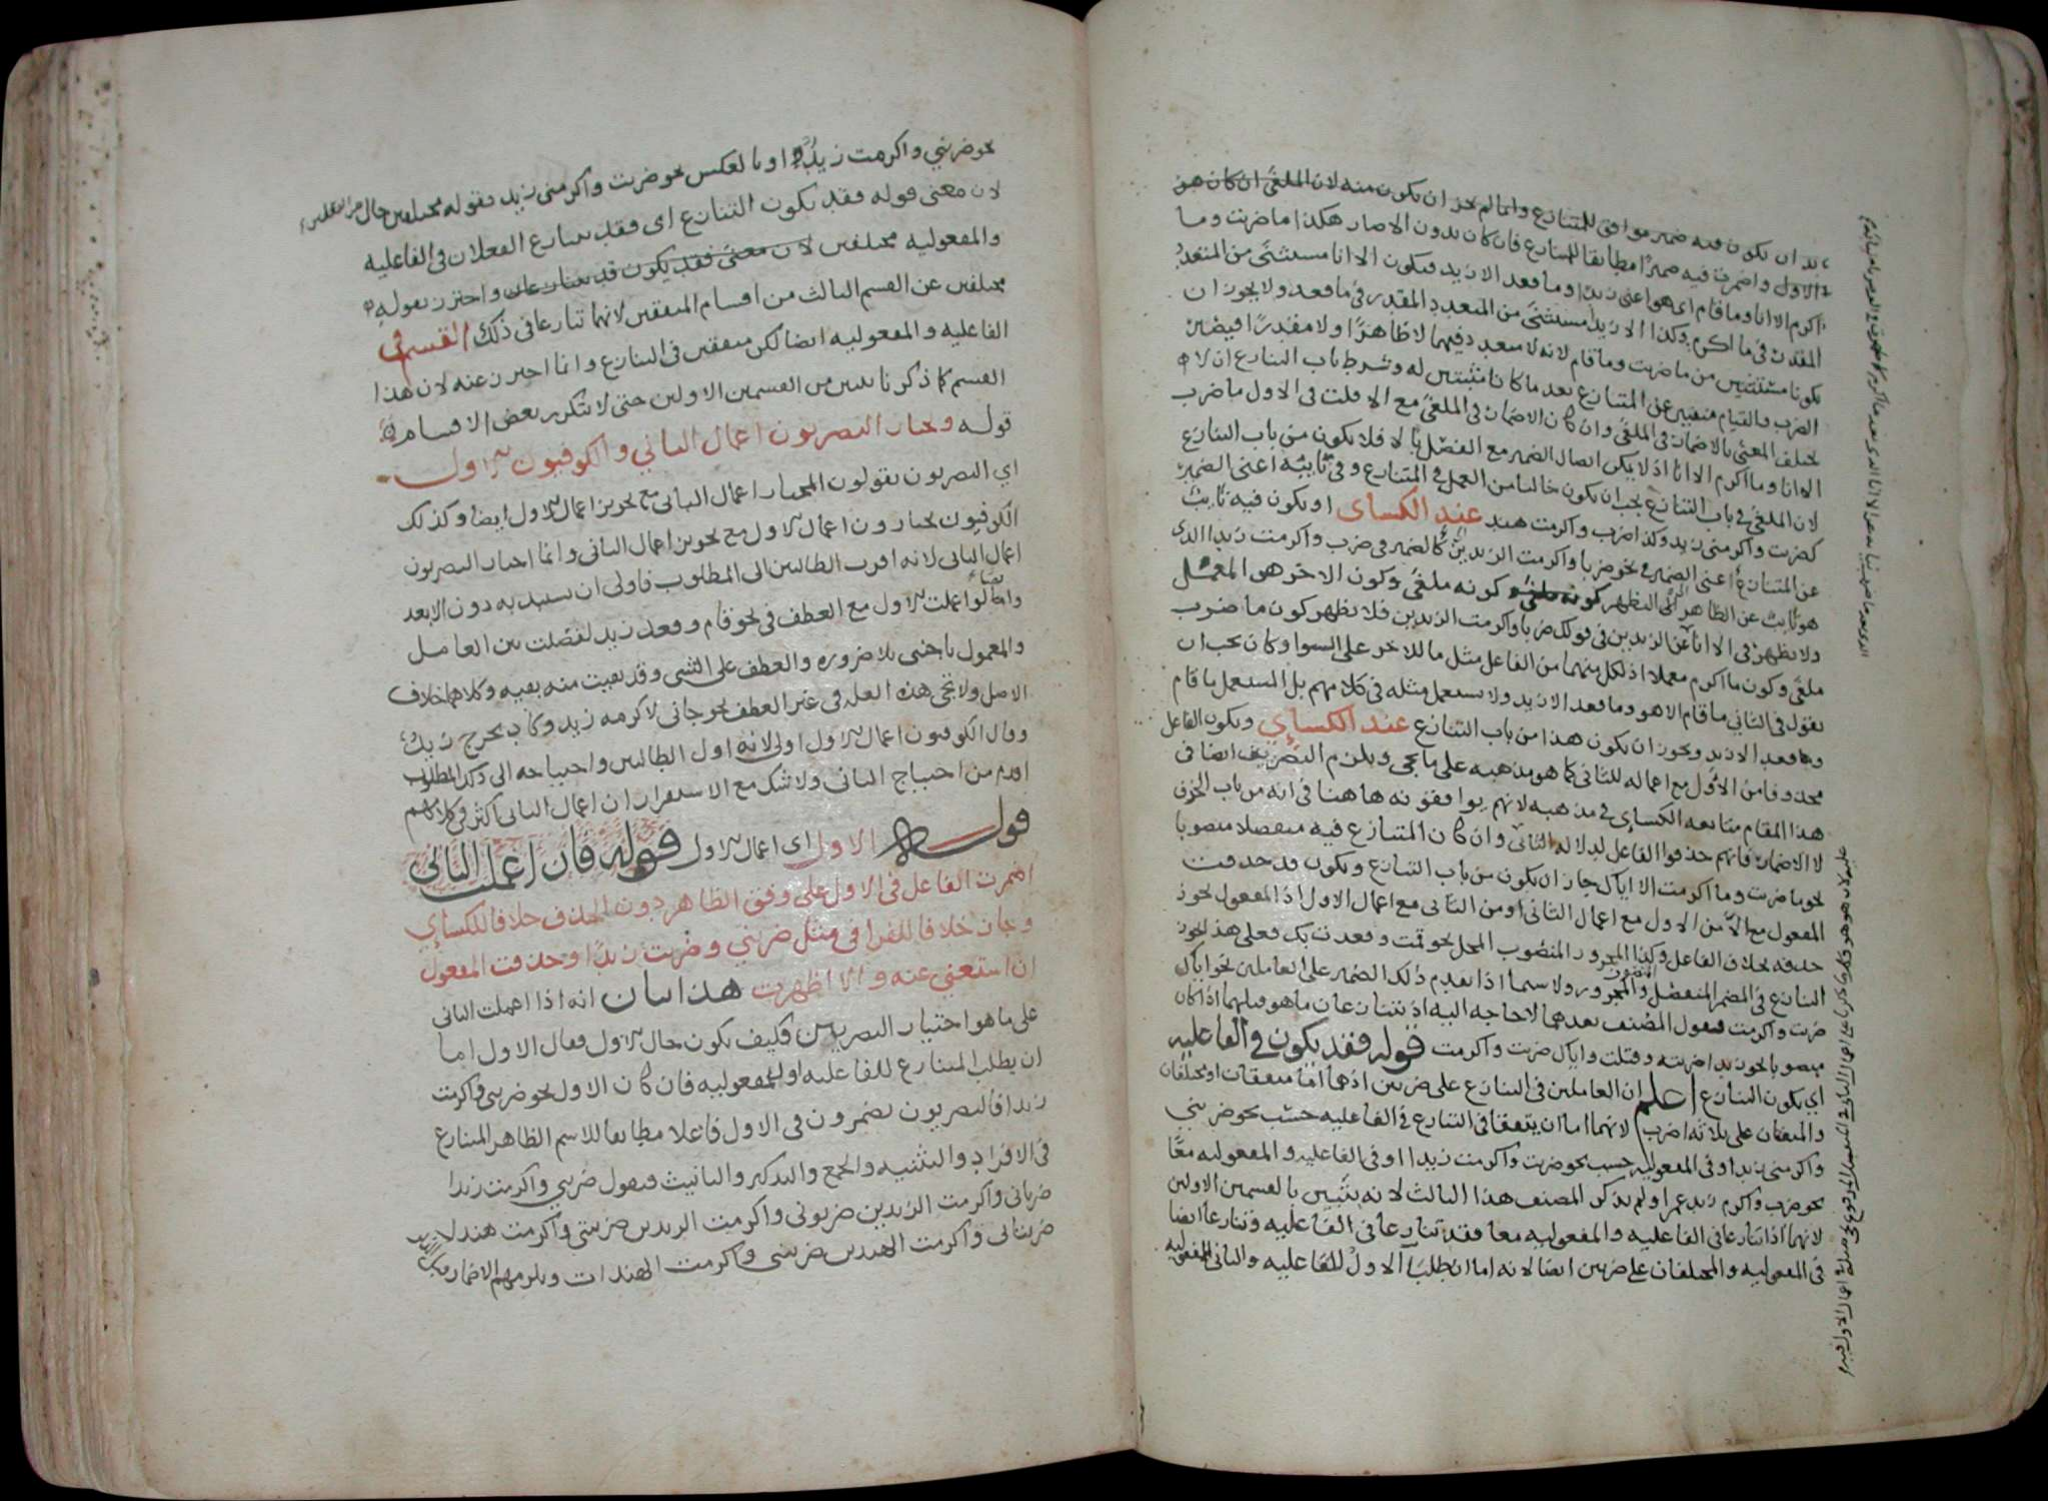 بد ان يكون فيه ضمير موافق للمتنازع وانما لم يجز ان يكون منه لان الملغى ان كان هو
الاول واضمرت فيه ضميرا مطابقا للمتنازع فان كان بدون الا صار هكذا ما ضربت وما
اكرم الا انا وما قام اى هو اعنى زيدا وما قعد الا زيد فيكون الا انا مستثنى من المتعدد
المقدر فى ما اكرم وكذا الا زيد مستثنى من المتعدد المقدر فى ما قعد ولا يجوز ان
يكونا مستثنيين من ما ضربت وما قام لانه لا متعدد فيهما لا ظاهرا ولا مقدرا فيصير
الضرب والقيام منفيين عن المتنازع بعد ما كانا مثبتين له وشرط باب التنازع ان لا
يختلف المعنى بالاضمار فى الملغى وان كان الاضمار فى الملغى مع الا قلت فى الاول ما ضرب
الا انا وما اكرم الا انا اذ لا يمكن اتصال الضمير مع الفصل بالا فلا يكون من باب التنازع
لان الملغى فى باب التنازع يجب ان يكون خاليا من العمل فى المتنازع وفى نايبه اعنى الضمير
كضربت واكرمنى زيد وكذا ضرب واكرمت هند عند الكساى او يكون فيه نايب
عن المتنازع اعنى الضمير فى نحو ضربا واكرمت الزيدين كالضمير فى ضرب واكرمت زيدا الذى
هو نايب عن الظاهر الى ليظهر كونه ملغى كونه ملغى وكون الاخر هو المعمل
ولا يظهر فى الا انا عن الزيدين فى قولك ضربا واكرمت الزيدين فلا يظهر كون ما ضرب
ملغى وكون ما اكرم معملا اذ لكل منهما من الفاعل مثل ما للاخر على السوا وكان يجب ان
يقول فى الثانى ما قام الا هو وما قعد الا زيد ولا يستعمل مثله فى كلامهم بل المستعمل ما قام
وما قعد الا زيد ويجوز ان يكون هذا من باب التنازع عند الكساى ويكون الفاعل
محذوفا من الاول مع اعماله للثانى كما هو مذهبه على ما يجى ويلزم البصريين ايضا فى
هذا المقام متابعه الكساى فى مذهبه لانهم يوافقونه هاهنا فى انه من باب الحذف
لا الاضمار فانهم حذفوا الفاعل لدلاله الثانى وان كان المتنازع فيه منفصلا منصوبا
نحو ما ضربت وما اكرمت الا اياك جاز ان يكون من باب التنازع ويكون قد حذفت
المفعول مع الا من الاول مع اعمال الثانى او من الثانى مع اعمال الاول اذ المفعول يجوز
حذفه بخلاف الفاعل وكذا المجرور المنصوب المحل نحو قمت وقعدت بك فعلى هذا يجوز
التنازع فى المضمر المنفصل المنصوب والمجرور ولا سيما اذا تقدم ذلك الضمير على العاملين نحو اياك
ضربت واكرمت فقول المصنف بعدهما لا حاجه اليه اذ يتنازعان ما هو قبلهما اذا كان
منصوبا نحو زيدا ضربته وقتلت واياك ضربت واكرمت قوله فقد يكون فى الفاعليه
اي يكون التنازع اعلم ان العاملين فى التنازع على ضربين اذ هما اما متفقان او مختلفان
والمتفقان على ثلاثه اضرب لانهما اما ان يتفقا فى التنازع فى الفاعليه حسب نحو ضربنى
واكرمنى زيد او فى المفعوليه حسب نحو ضربت واكرمت زيدا او فى الفاعليه والمفعوليه معا
نحو ضرب واكرم زيد عمرا ولم يذكر المصنف هذا الثالث لانه يتبين بالقسمين الاولين
لانهما اذا تنازعا فى الفاعليه والمفعوليه معا فقد تنازعا فى الفاعليه وتنازعا ايضا
فى المفعوليه والمختلفان على ضربين ايضا لانه اما ان يطلب الاول للفاعليه والثانى للمفعوليه
نحو ضربنى واكرمت زيدا او بالعكس نحو ضربت واكرمنى زيد فقوله مختلفين حال من الفعلين
لان معنى قوله فقد يكون التنازع اى فقد يتنازع الفعلان فى الفاعليه
والمفعوليه مختلفين لان معنى فقد يكون قد يتنازعان واحترز بقوله
مختلفين عن القسم الثالث من اقسام المتفقين لانهما تنازعا فى ذلك القسم فى
الفاعليه والمفعوليه ايضا لكن متفقين فى التنازع وانما احترز عنه لان هذا
القسم كما ذكرنا تبين من القسمين الاولين حتى لا تتكرر بعض الاقسام
قوله ويختار البصريون اعمال الثاني والكوفيون الاول
اي البصريون يقولون المختار اعمال الثانى مع تجويز اعمال الاول ايضا وكذلك
الكوفيون يختارون اعمال الاول مع تجويز اعمال الثانى وانما اختار البصريون
اعمال الثانى لانه اقرب الطالبين الى المطلوب فاولى ان يستبد به دون الابعد
وايضا لو اعملت الاول مع العطف فى نحو قام وقعد زيد لفصلت بين العامل
والمعمول باجنبى بلا ضروره والعطف على الشى وقد بقيت منه بقيه وكلاهما خلاف
الاصل ولا تجى هذه العله فى غير العطف نحو جانى لاكرمه زيد وكاد يخرج زيد
وقال الكوفيون اعمال الاول اولى لانه اول الطالبين واحتياجه الى ذلك المطلوب
اقدم من احتياج الثانى ولا شك مع الاستقرار ان اعمال الثانى اكثر فى كلامهم
قوله الاول اى اعمال الاول قوله فان اعملت الثانى
اضمرت الفاعل فى الاول على وفق الظاهر دون الحذف خلافا للكساي
وجاز خلافا للفرا فى مثل ضربني وضربت زيدا وحذفت المفعول
ان استغني عنه والا اظهرت هذا بيان انه اذا اعملت الثانى
على ما هو اختيار البصريين فكيف يكون حال الاول فقال الاول اما
ان يطلب المتنازع للفاعليه او للمفعوليه فان كان الاول نحو ضربنى واكرمت
زيدا فالبصريون يضمرون فى الاول فاعلا مطابقا للاسم الظاهر المتنازع
فى الافراد والتثنيه والجمع والتذكير والتانيث فيقول ضربني واكرمت زيدا
ضربانى واكرمت الزيدين ضربونى واكرمت الزيدين ضربتنى واكرمت هندا
ضربتانى واكرمت الهندين ضربننى واكرمت الهندات ويلزمهم الاضمار قبل